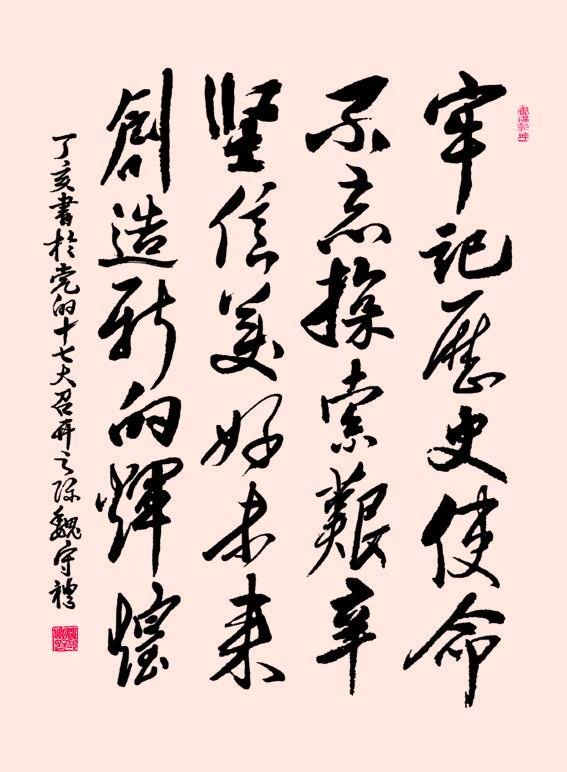 牢记歷史使命
不忘探索艱辛
坚信美好未来
創造新的輝煌
丁亥書於党的十七大召开之际魏守禮